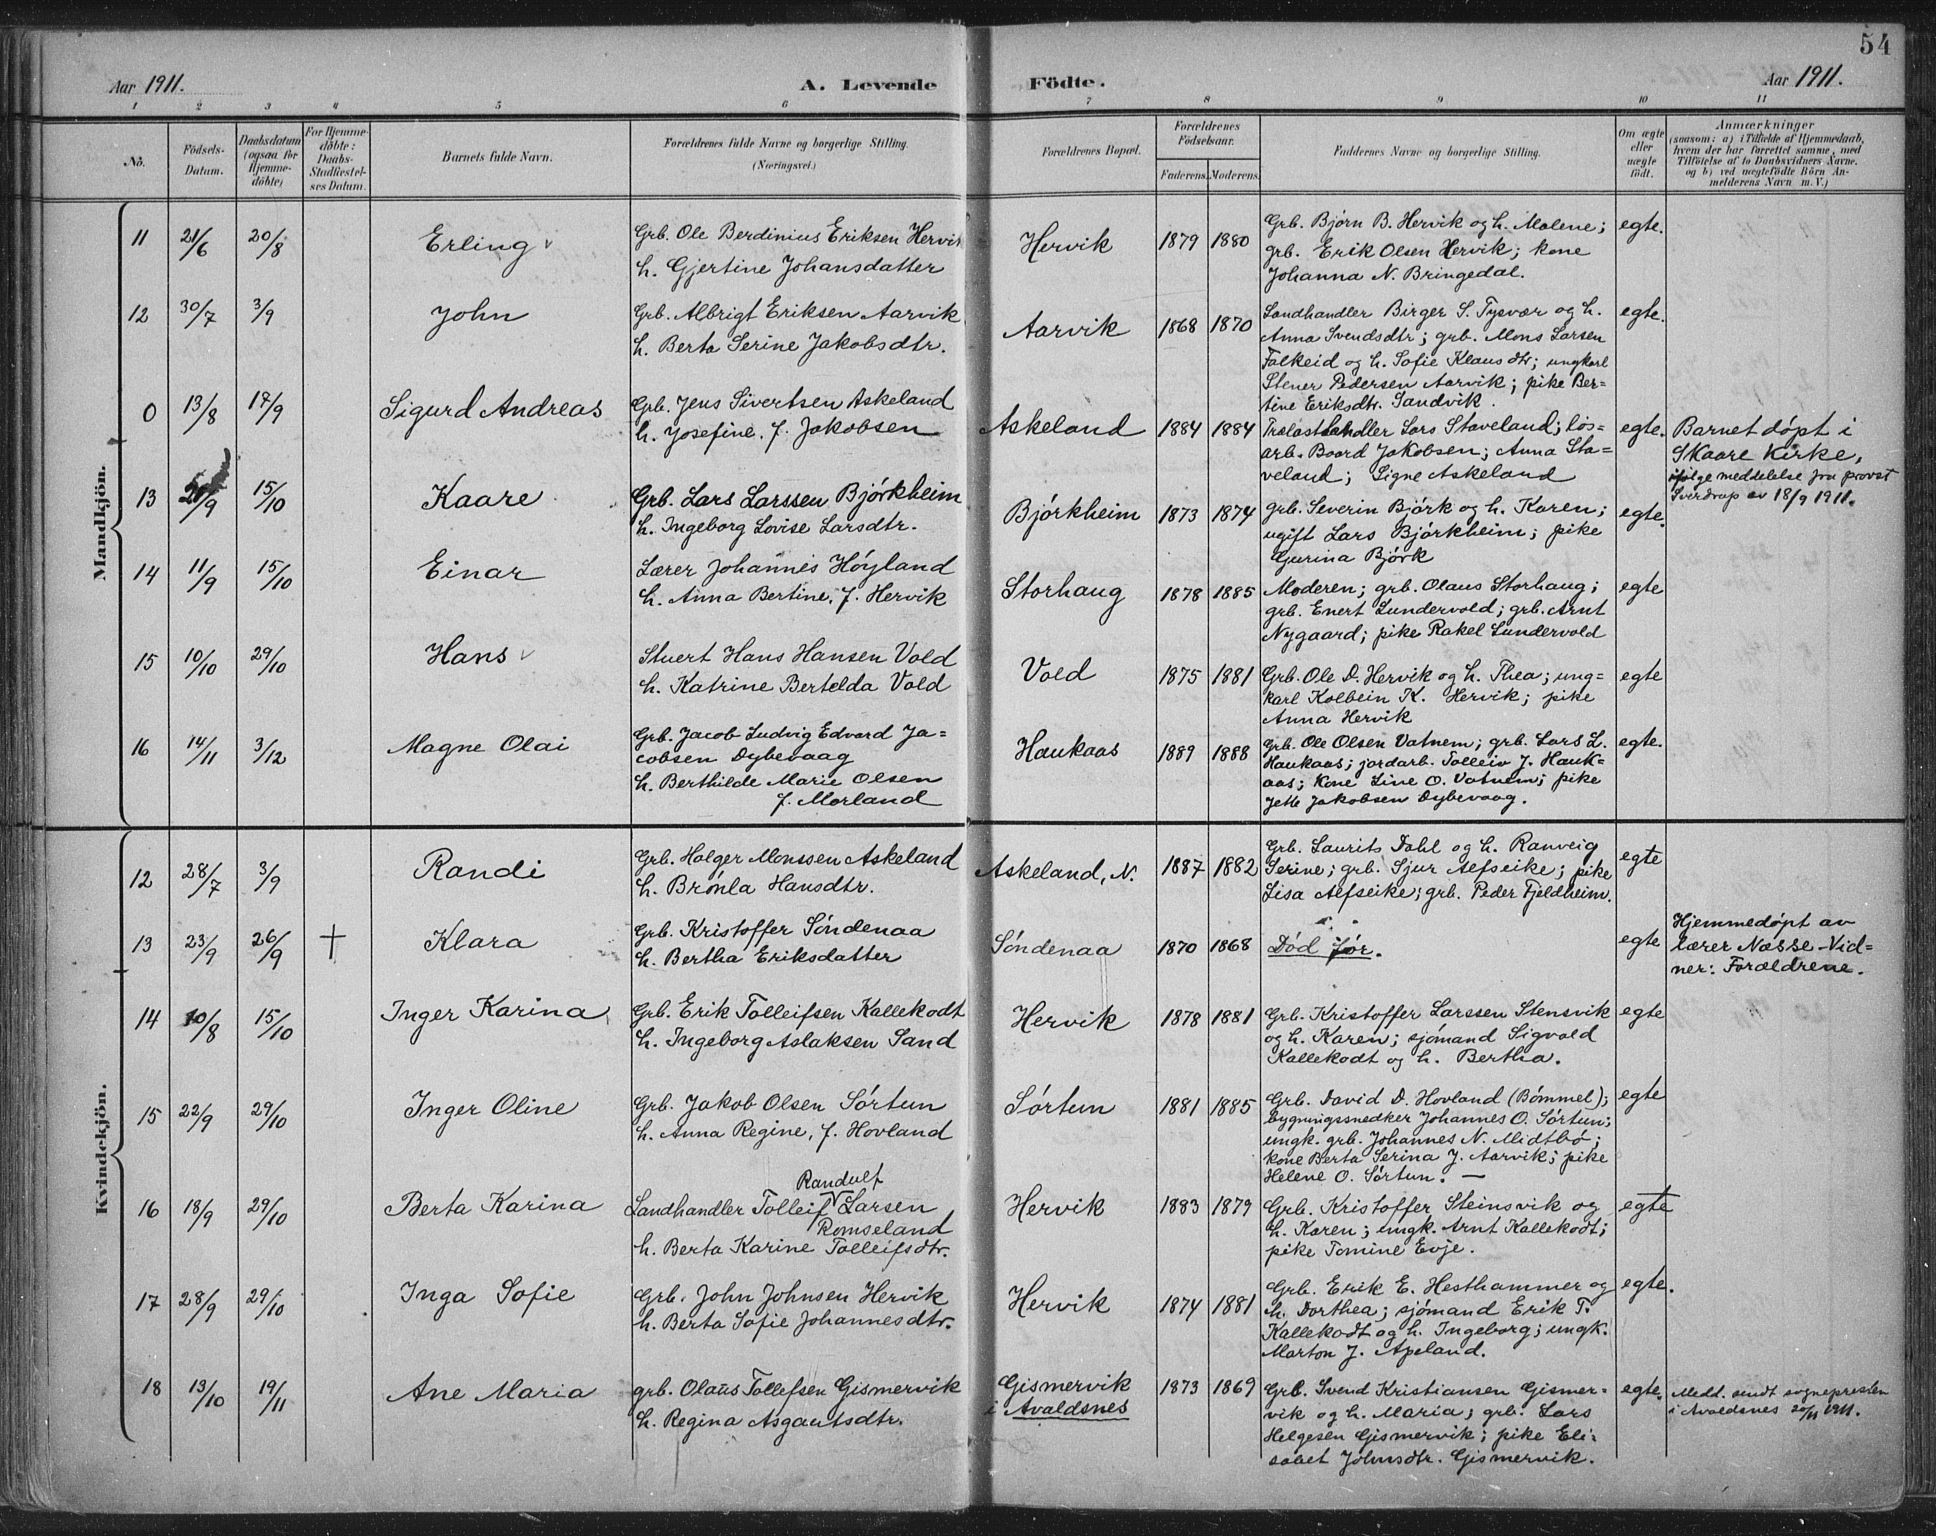 54
Aar 1911. A. Levende Födte. Aar 1911.
1 2 3 4 5 6 7 8 9 10 11
No. Födsels-Datum. Daabsdatum (ogsaa for Hjemmedöbte) For Hjemmedöbte: Daabs-Stadfæstelses Datum. Barnets fulde Navn. Forældrenes fulde Navne og borgerlige Stilling. (Næringsvei.) Forældrenes Bopæl. Forældrenes Födselsaar. Faderens. Moderens. Faddernes Navne og borgerlige Stilling. Om ægte eller uægte födt. Anmærkninger (saasom: a) i Tilfælde af Hjemmedaab, hvem der har forrettet samme, med Tilföielse af to Daabsvidners Navne. og b) ved uægtefödte Börn Anmelderens Navn m. V.)
Mandkjön.
11 21/6 20/8 Erling Grb. Ole Berdinius Eriksen Hervik Hervik 1879 1880 Grb. Bjørn B. Hervik og h. Malene; egte.
h. Gjertine Johansdatter grb. Erik Olsen Hervik; kone
Johanna N. Bringedal.
12 30/7 3/9 John Grb. Albrigt Eriksen Aarvik Aarvik 1868 1870 Landhandler Birger S. Tysvær og h. egte.
h. Berta Serine Jakobsdtr. Anna Svendsdtr; grb. Mons Larsen
Falkeid og h. Sofie Klausdtr; ungkarl
Stener Pedersen Aarvik; pike Ber=
tine Eriksdtr. Sandvik.
0 13/8 17/9 Sigurd Andreas Grb. Jens Sivertsen Askeland Askeland 1884 1884 Trælasthandler Lars Staveland; løs= egte. Barnet døpt i
h. Josefine, f. Jakobsen arb. Baard Jakobsen; Anna Sta= Skaare Kirke,
veland; Signe Askeland ifølge meddelelse fra provst
Sverdrup av 18/9 1911.
13 /9 15/10 Kaare Grb. Lars Larssen Bjórkheim Bjórkheim 1873 1874 grb. Severin Bjórk og h. Karen; egte.
h. Ingeborg Lovise Larsdtr. ugift Lars Bjórkheim; pike
Gurina Bjórk
14 11/9 15/10 Einar Lærer Johannes Hóyland Storhaug 1878 1885 Moderen; grb. Olaus Storhaug; egte
h. Anna Bertine, f. Hervik grb. Enert Lundervold; grb. Arnt
Nygaard; pike Rakel Lundervold
15 10/10 29/10 Hans Stuert Hans Hansen Vold Vold 1875 1881 Grb. Ole D. Hervik og h. Thea; ung= egte
h. Katrine Bertelda Vold karl Kolbein K. Hervik; pike
Anna Hervik
16 14/11 3/12 Magne Olai Grb. Jacob Ludvig Edvard Ja= Haukaas 1889 1888 Grb. Ole Olsen Vatnem; grb. Lars L. egte.
cobsen Dybevaag Haukaas; jordarb. Tolleiv J. Hauk=
h. Berthilde Marie Olsen aas; Kone Line O. Vatnem; pike
f. Morland Jette Jakobsen Dybevaag.
Kvindekjön.
12 28/7 3/9 Randi Grb. Holger Monssen Askeland Askeland, N. 1887 1882 Grb. Laurits Dahl og h. Ranveig egte
h. Brónla Hansdtr. Serine; grb. Sjur Aefseike; pike
Lisa Aefseike; grb. Peder Fjeldheim.
13 23/9 26/9 † Klara Grb. Kristoffer Sóndenaa Sóndenaa 1870 1868 Død før. egte Hjemmedøpt av
h. Bertha Eriksdatter lærer Næsse - Vid=
ner: Forældrene.
14 10/8 15/10 Inger Karina Grb. Erik Tolleifsen Kallekodt Hervik 1878 1881 Grb. Kristoffer Larssen Stensvik egte
h. Ingeborg Aslaksen Sand og h. Karen; sjómand Sigvald
Kallekodt og h. Bertha.
15 22/9 29/10 Inger Oline Grb. Jakob Olsen Sórtun Sórtun 1881 1885 Grb. David D. Hovland (Bómmel); egte
h. Anna Regine, f. Hovland bygningssnedker Johannes O. Sórtun;
ungk. grb. Johannes N. Midtbó;
kone Berta Serina J. Aarvik; pike
Helene O. Sórtun. —
16 18/9 29/10 Berta Karina Landhandler Tolleif Randulf Larsen Hervik 1883 1879 Grb. Kristoffer Steinsvik og egte
Romseland h. Karen; ungk. Arnt Kallekodt;
h. Berta Karine Tolleifsdtr. pike Tomine Evje.
17 28/9 29/10 Inga Sofie Grb. John Johnsen Hervik Hervik 1874 1881 Grb. Erik E. Hesthammer og egte.
h. Berta Sofie Johannesdtr. h. Dorthea; sjómand Erik T.
Kallekodt og h. Ingeborg; ungk.
Marton J. Apeland.
18 13/10 19/11 Ane Maria grb. Olaus Tollefsen Gismervik Gismervik 1873 1869 Grb. Svend Kristiansen Gismer= egte. Medt. sendt sognepresten
h. Regina Asgautsdtr. i Avaldsnes vik og h. Maria; grb. Lars i Avaldsnes 20/11 1911.
Helgesen Gismervik; pike Eli=
sabet Johnsdtr. Gismervik.